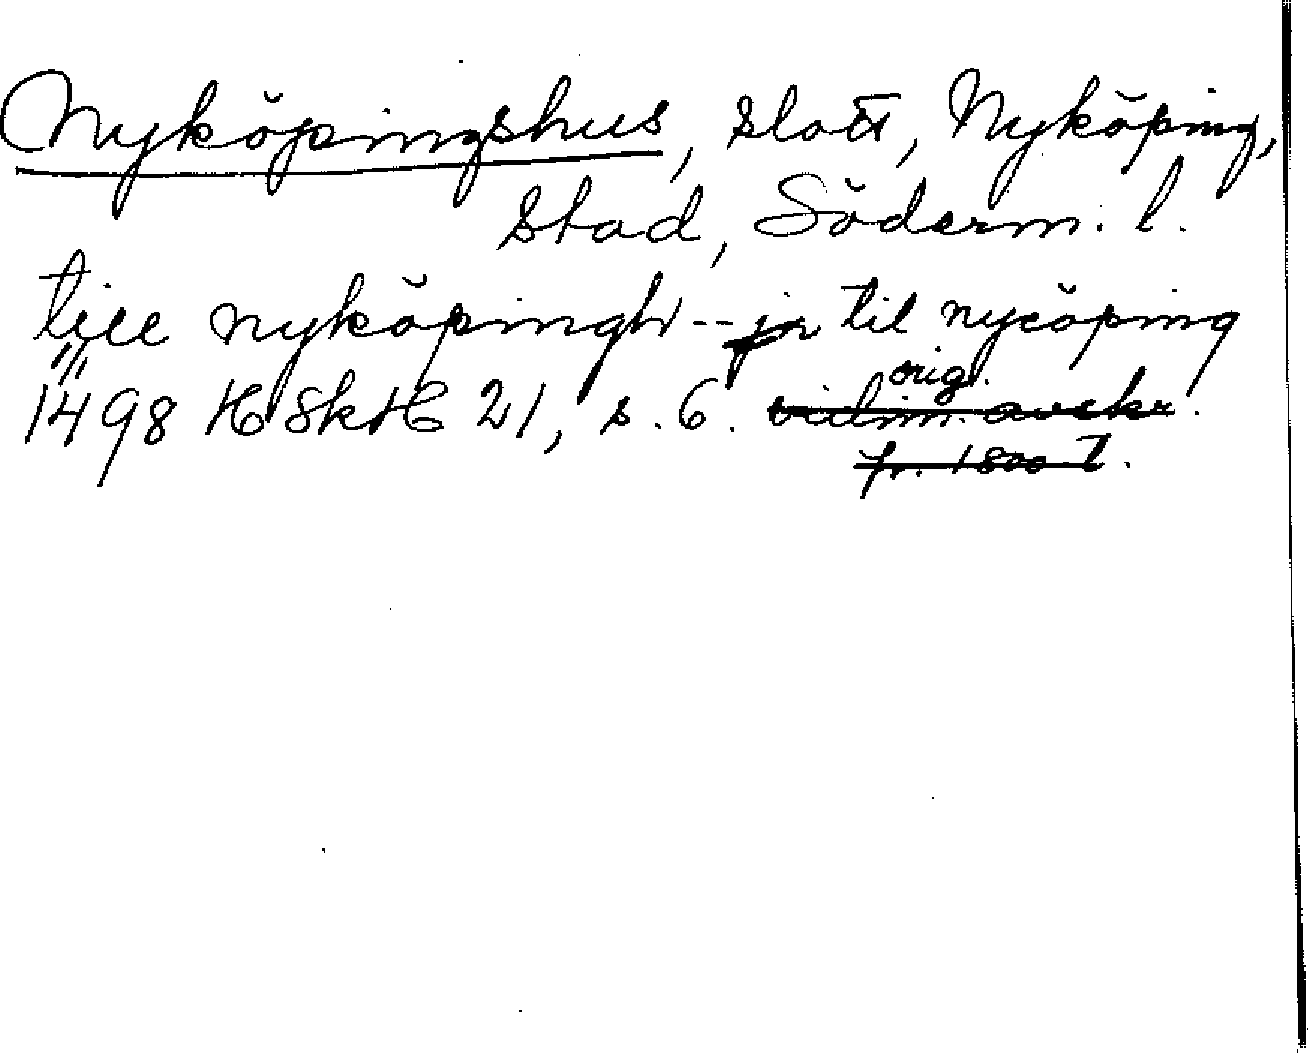 Nyköpingshus, slott, Nyköping,
stad, Söderm. l.
till nyköpingh -- jn til nycöping
orig.
1498 HSkH 21, s. 6. vidim. avskr.
fr. 1800 t.